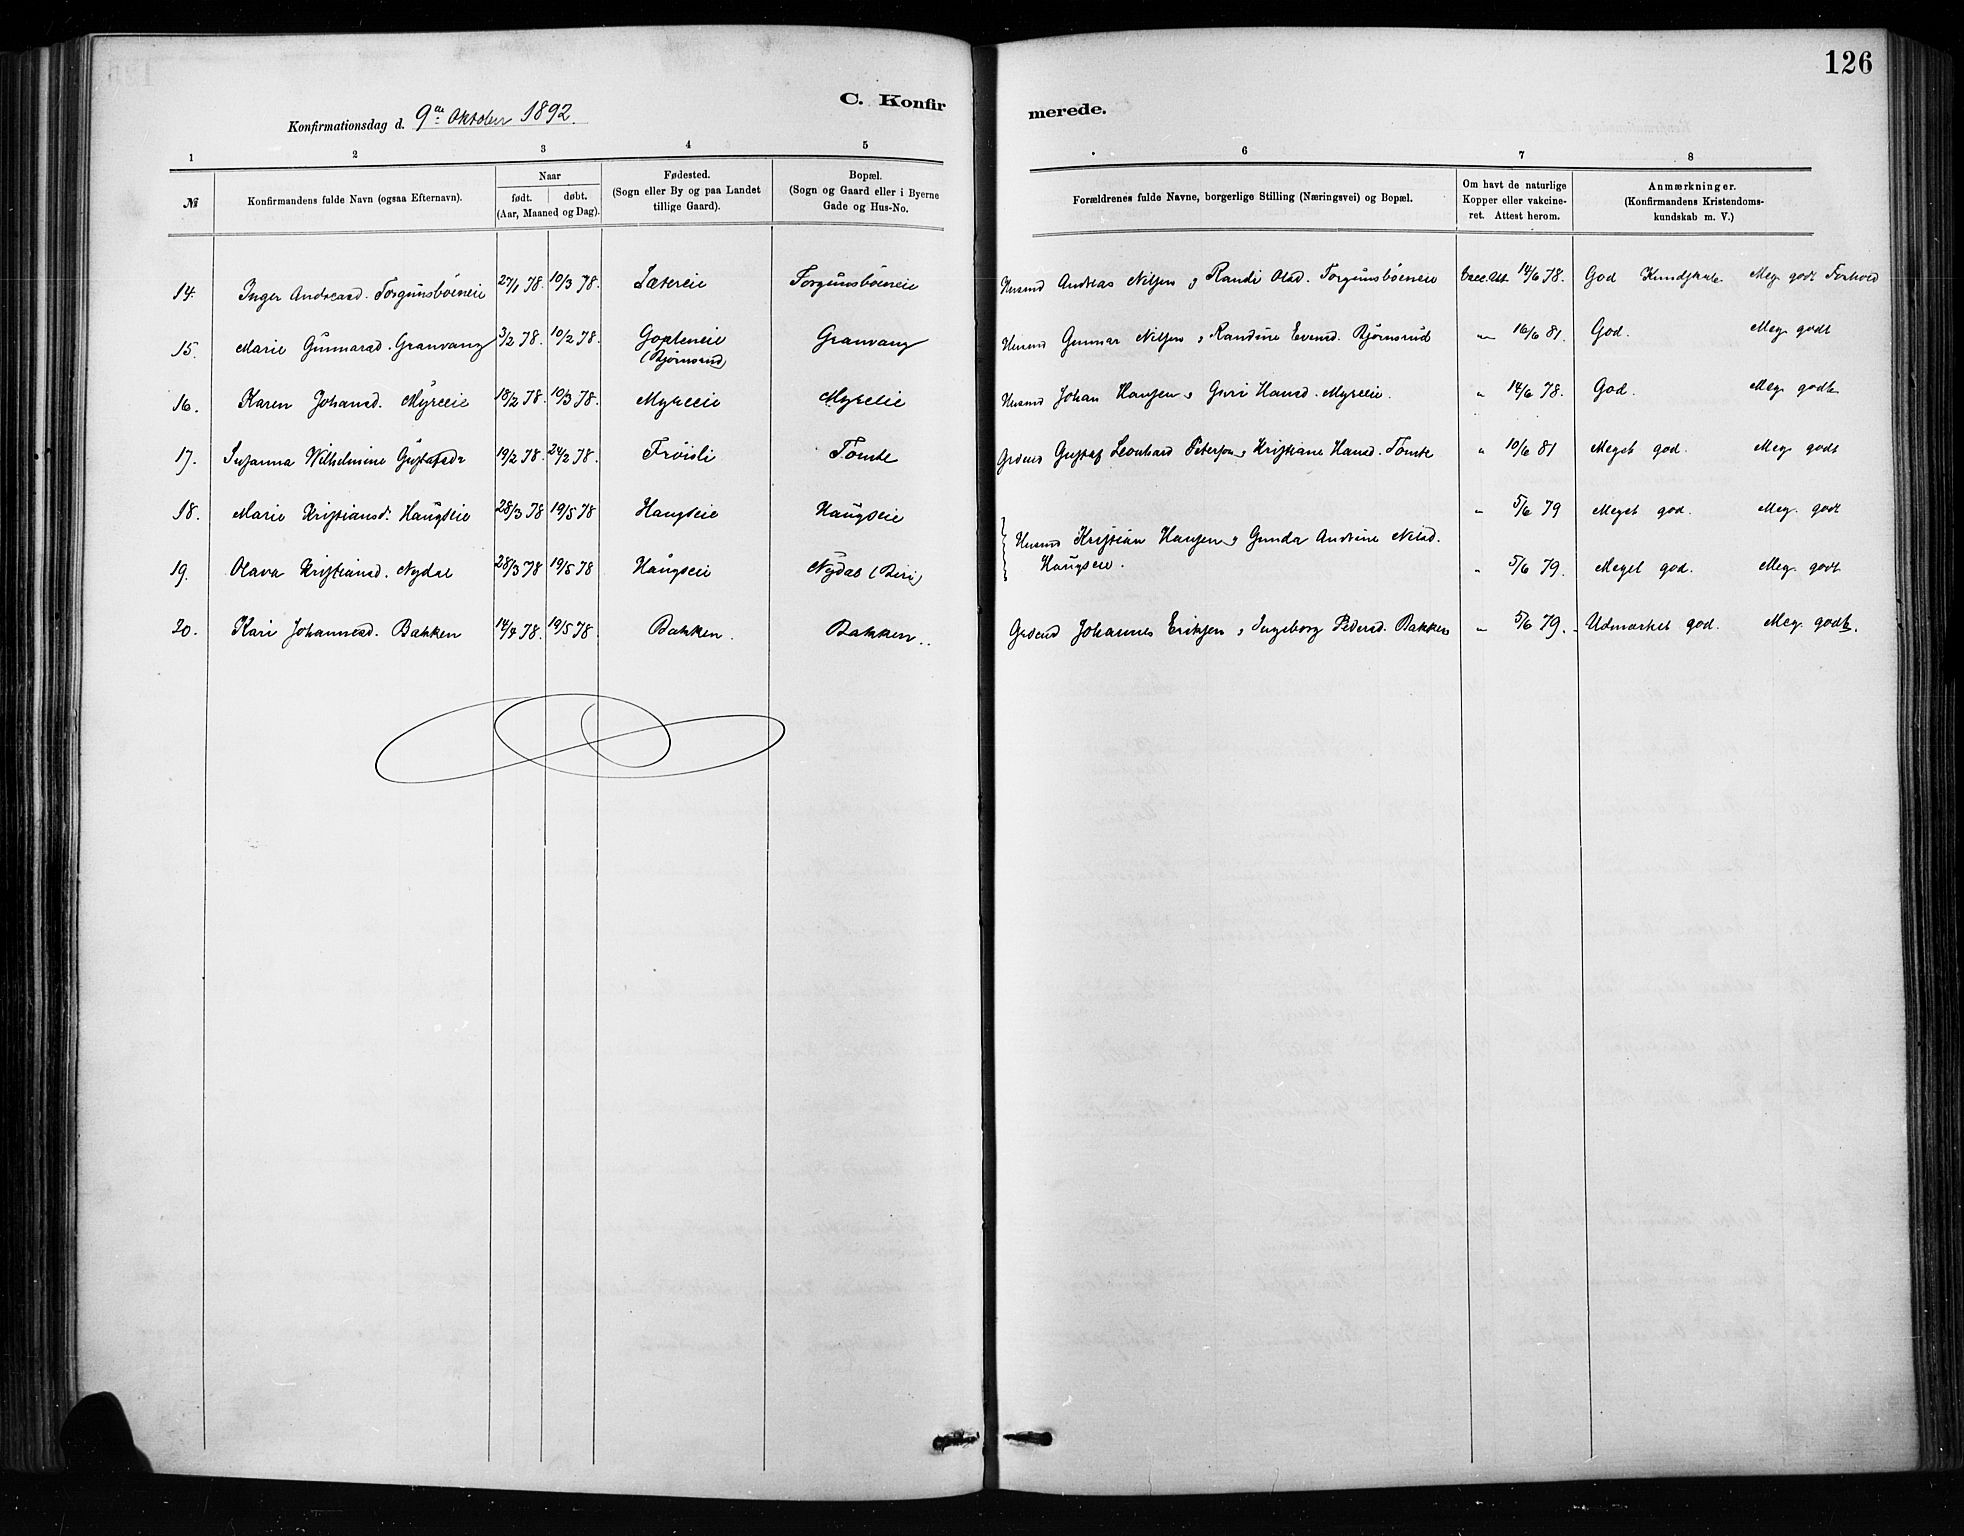 126
C. Konfir
merede.
Konfirmationsdag d. 9de Oktober 1892.
1 2 3 4 5 6 7 8
№ Konfirmandens fulde Navn (ogsaa Efternavn). Naar født. døbt. (Aar, Maaned og Dag). Fødested. (Sogn eller By og paa Landet tillige Gaard). Bopæl. (Sogn og Gaard eller i Byerne Gade og Hus-No. Forældrenes fulde Navne, borgerlige Stilling (Næringsvei) og Bopæl. Om havt de naturlige Kopper eller vakcineret. Attest herom. Anmærkninger. (Konfirmandens Kristendomskundskab m. V.)
14. Inger Andreasd. Torgunsbøeneie 27/1 78. 10/3 78. Sætereie Torgunsbøeneie Husmd Andreas Nilsen & Randi Olsd. Torgunsbøeneie Vacc. Att. 14/6 78. God Kundskab. Meg. godt Forhold
15. Marie Gunnarsd. Granvang 3/2 78. 10/2 78. Gopleneie Granvang Husmd Gunnar Nilsen & Randine Evensd. Bjørnsrud " 16/6 81. God. Meg. godt
(Bjørnsrud)
16. Karen Johansd. Myreeie 18/2 78. 10/3 78. Myreeie Myreeie Husmd Johan Hansen & Guri Hansd. Myreeie. " 14/6 78. God. Meg. godt
17. Susanna Wilhelmine Gustafsdr 19/2 78. 24/2 78. Frøisli Tomte Grdeier Gustaf Leonhard Peterson & Kristiane Hansd. Tomte " 10/6 81 Meget god. Meg. godt
18. Marie Kristiansd. Haugseie 28/3 78 19/5 78 Haugseie Haugseie " 5/6 79 Meget god. Meg. godt
Husmd Kristian Hansen & Gunda Andrine Nilsd.
19. Olava Kristiansd. Nydal 28/3 78 19/5 78 Haugseie Nydal (Biri) Haugseie. " 5/6 79. Meget god. Meg. godt
20. Kari Johannesd. Bakken 14/4 78. 19/5 78 Bakken. Bakken.. Johannes Eriksen & Ingeborg Pedersd. Bakken " 5/6 79. Udmærket god. Meg. godt.